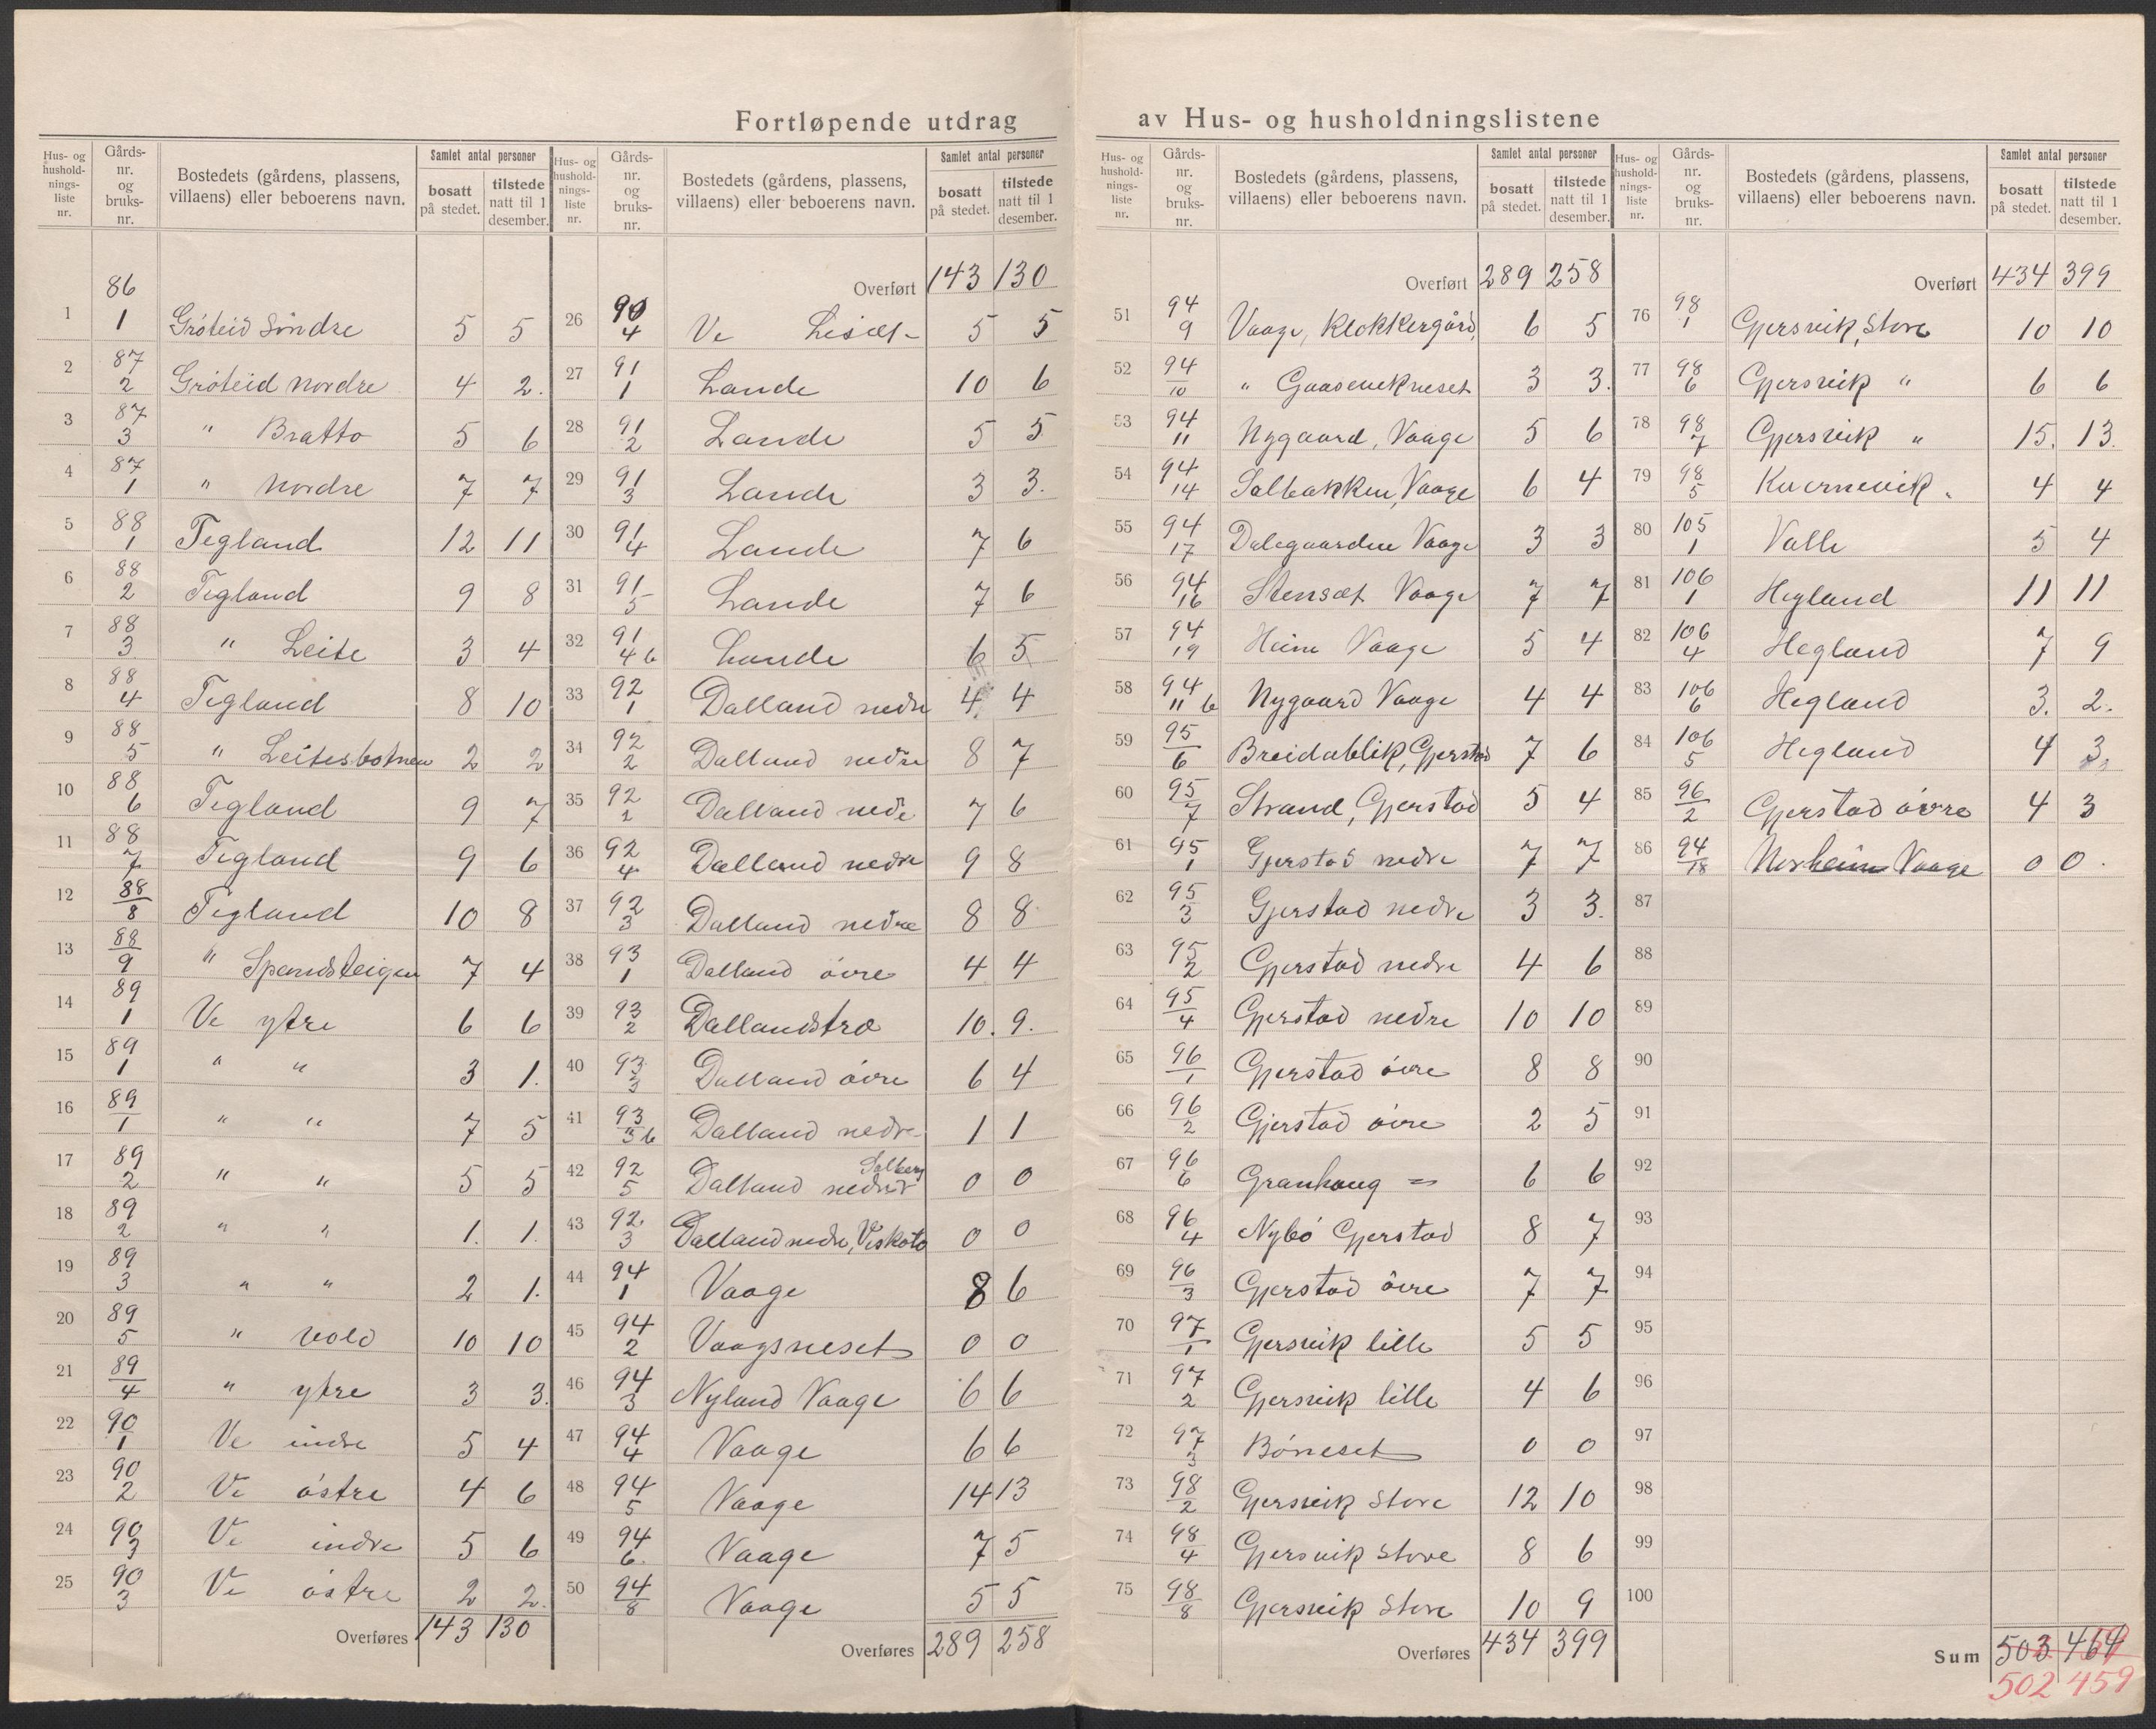 Fortløpende utdrag av Hus- og husholdningslistene
Hus- og hushold-nings-liste nr. | Gårds-nr. og bruks-nr. | Bostedets (gårdens, plassens, villaens) eller beboerens navn. | Samlet antal personer | bosatt på stedet. | tilstede natt til 1 desember.
1 86/1 Gróteid Söndre 5 5
2 87/2 Gróteid Nordre 4 2.
3 87/3 " Bratto 5 6
4 87/1 " Nordre 7 7
5 88/1 Tegland 12 11
6 88/2 Tegland 9 8
7 88/3 " Leite 3 4
8 88/4 Tegland 8 10
9 88/5 " Leitesbotnen 2 2
10 88/6 Tegland 9 7
11 88/7 Tegland 9 6
12 88/8 Tegland 10 8
13 88/9 " Spandsteigen 7 4
14 89/1 Ve ytre 6 6
15 89/1 " " 3 1.
16 89/1 " " 7 5
17 89/2 " " 5 5
18 89/2 " " 1. 1.
19 89/3 " " 2 1.
20 89/5 " Vold 10 10
21 89/4 " ytre 3 3.
22 90/1 Ve indre 5 4
23 90/2 Ve óstre 4 6
24 90/3 Ve indre 5 6
25 90/3 Ve óstre 2 2.
Overføres 143 130
Hus- og hushold-nings-liste nr. | Gårds-nr. og bruks-nr. | Bostedets (gårdens, plassens, villaens) eller beboerens navn. | Samlet antal personer | bosatt på stedet. | tilstede natt til 1 desember.
Overført 143 130
26 90/4 Ve Lisæt 5 5
27 91/1 Lande 10 6
28 91/2 Lande 5 5
29 91/3 Lande 3 3.
30 91/4 Lande 7 6
31 91/5 Lande 7 6
32 91/4 b Lande 6 5
33 92/1 Dalland nedre 4 4
34 92/2 Dalland nedre 8 7
35 92/2 Dalland nedre 7 6
36 92/4 Dalland nedre 9 8
37 92/3 Dalland nedre 8 8
38 93/1 Dalland óvre 4 4
39 93/2 Dallandstræ 10. 9.
40 93/3 Dalland óvre 6 4
41 93/3 b Dalland nedre 1 1
42 92/5 Dalland nedre Solberg 0 0
43 92/3 Dalland nedre, Veskoto 0 0
44 94/1 Vaage 8 6
45 94/2 Vaagsneset 0 0
46 94/3 Nyland Vaage 6 6
47 94/4 Vaage 6 6
48 94/5 Vaage 14 13
49 94/6. Vaage 7 5
50 94/8 Vaage 5 5
Overføres 289 258
Hus- og hushold-nings-liste nr. | Gårds-nr. og bruks-nr. | Bostedets (gårdens, plassens, villaens) eller beboerens navn. | Samlet antal personer | bosatt på stedet. | tilstede natt til 1 desember.
Overført 289 258
51 94/9 Vaage, Klokkergård, 6 5
52 94/10 " Gaasenekneset 3 3.
53 94/11 Nygaard, Vaage 5 6
54 94/14 Solbakken, Vaage 6 4
55 94/17 Dalegaarden Vaage 3 3
56 94/16 Stensæt Vaage 7 7
57 94/19 Heim Vaage 5 4
58 94/11 b Nygaard Vaage 4 4
59 95/6 Breidablik, Gjerstad 7 6
60 95/7 Strand, Gjerstad 5 4
61 95/1 Gjerstad nedre 7 7
62 95/3 Gjerstad nedre 3 3.
63 95/2 Gjerstad nedre 4 6
64 95/4 Gjerstad nedre 10 10
65 96/1 Gjerstad óvre 8 8
66 96/2 Gjerstad óvre 2 5
67 96/6 Granhaug = 6 6
68 96/4 Nybó Gjerstad 8 7
69 96/3 Gjerstad óvre 7 7
70 97/1 Gjersvik lille 5 5
71 97/2 Gjersvik lille 4 6
72 97/3 Bóneset 0 0
73 98/2 Gjersvik Store 12 10
74 98/4 Gjersvik Store 8 6
75 98/8 Gjersvik Store 10 9
Overføres 434 399
Hus- og hushold-nings-liste nr. | Gårds-nr. og bruks-nr. | Bostedets (gårdens, plassens, villaens) eller beboerens navn. | Samlet antal personer | bosatt på stedet. | tilstede natt til 1 desember.
Overført 434 399
76 98/1 Gjersvik, Store 10 10
77 98/6 Gjersvik " 6 6
78 98/7 Gjersvik " 15. 13.
79 98/5 Kvernevik " 4 4
80 105/1 Valle 5 4
81 106/1 Hegland 11 11
82 106/4 Hegland 7 9
83 106/6 Hegland 3. 2.
84 106/5 Hegland 4 3.
85 96/2 Gjerstad óvre 4 3
86 94/18 Norheim Vaage 0 0.
87
88
89
90
91
92
93
94
95
96
97
98
99
100
Sum 503 464
502 459